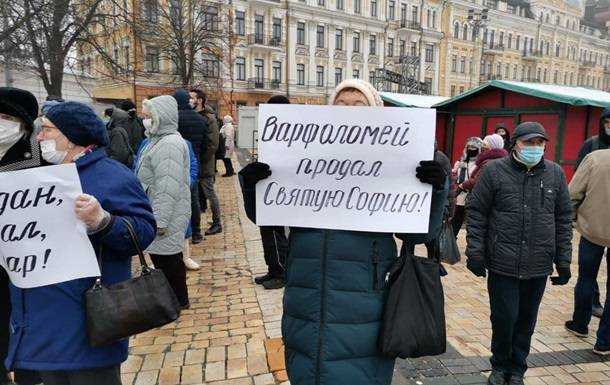 Варфаломей
продал
Святую Софию!
дан,
ал,
ар!